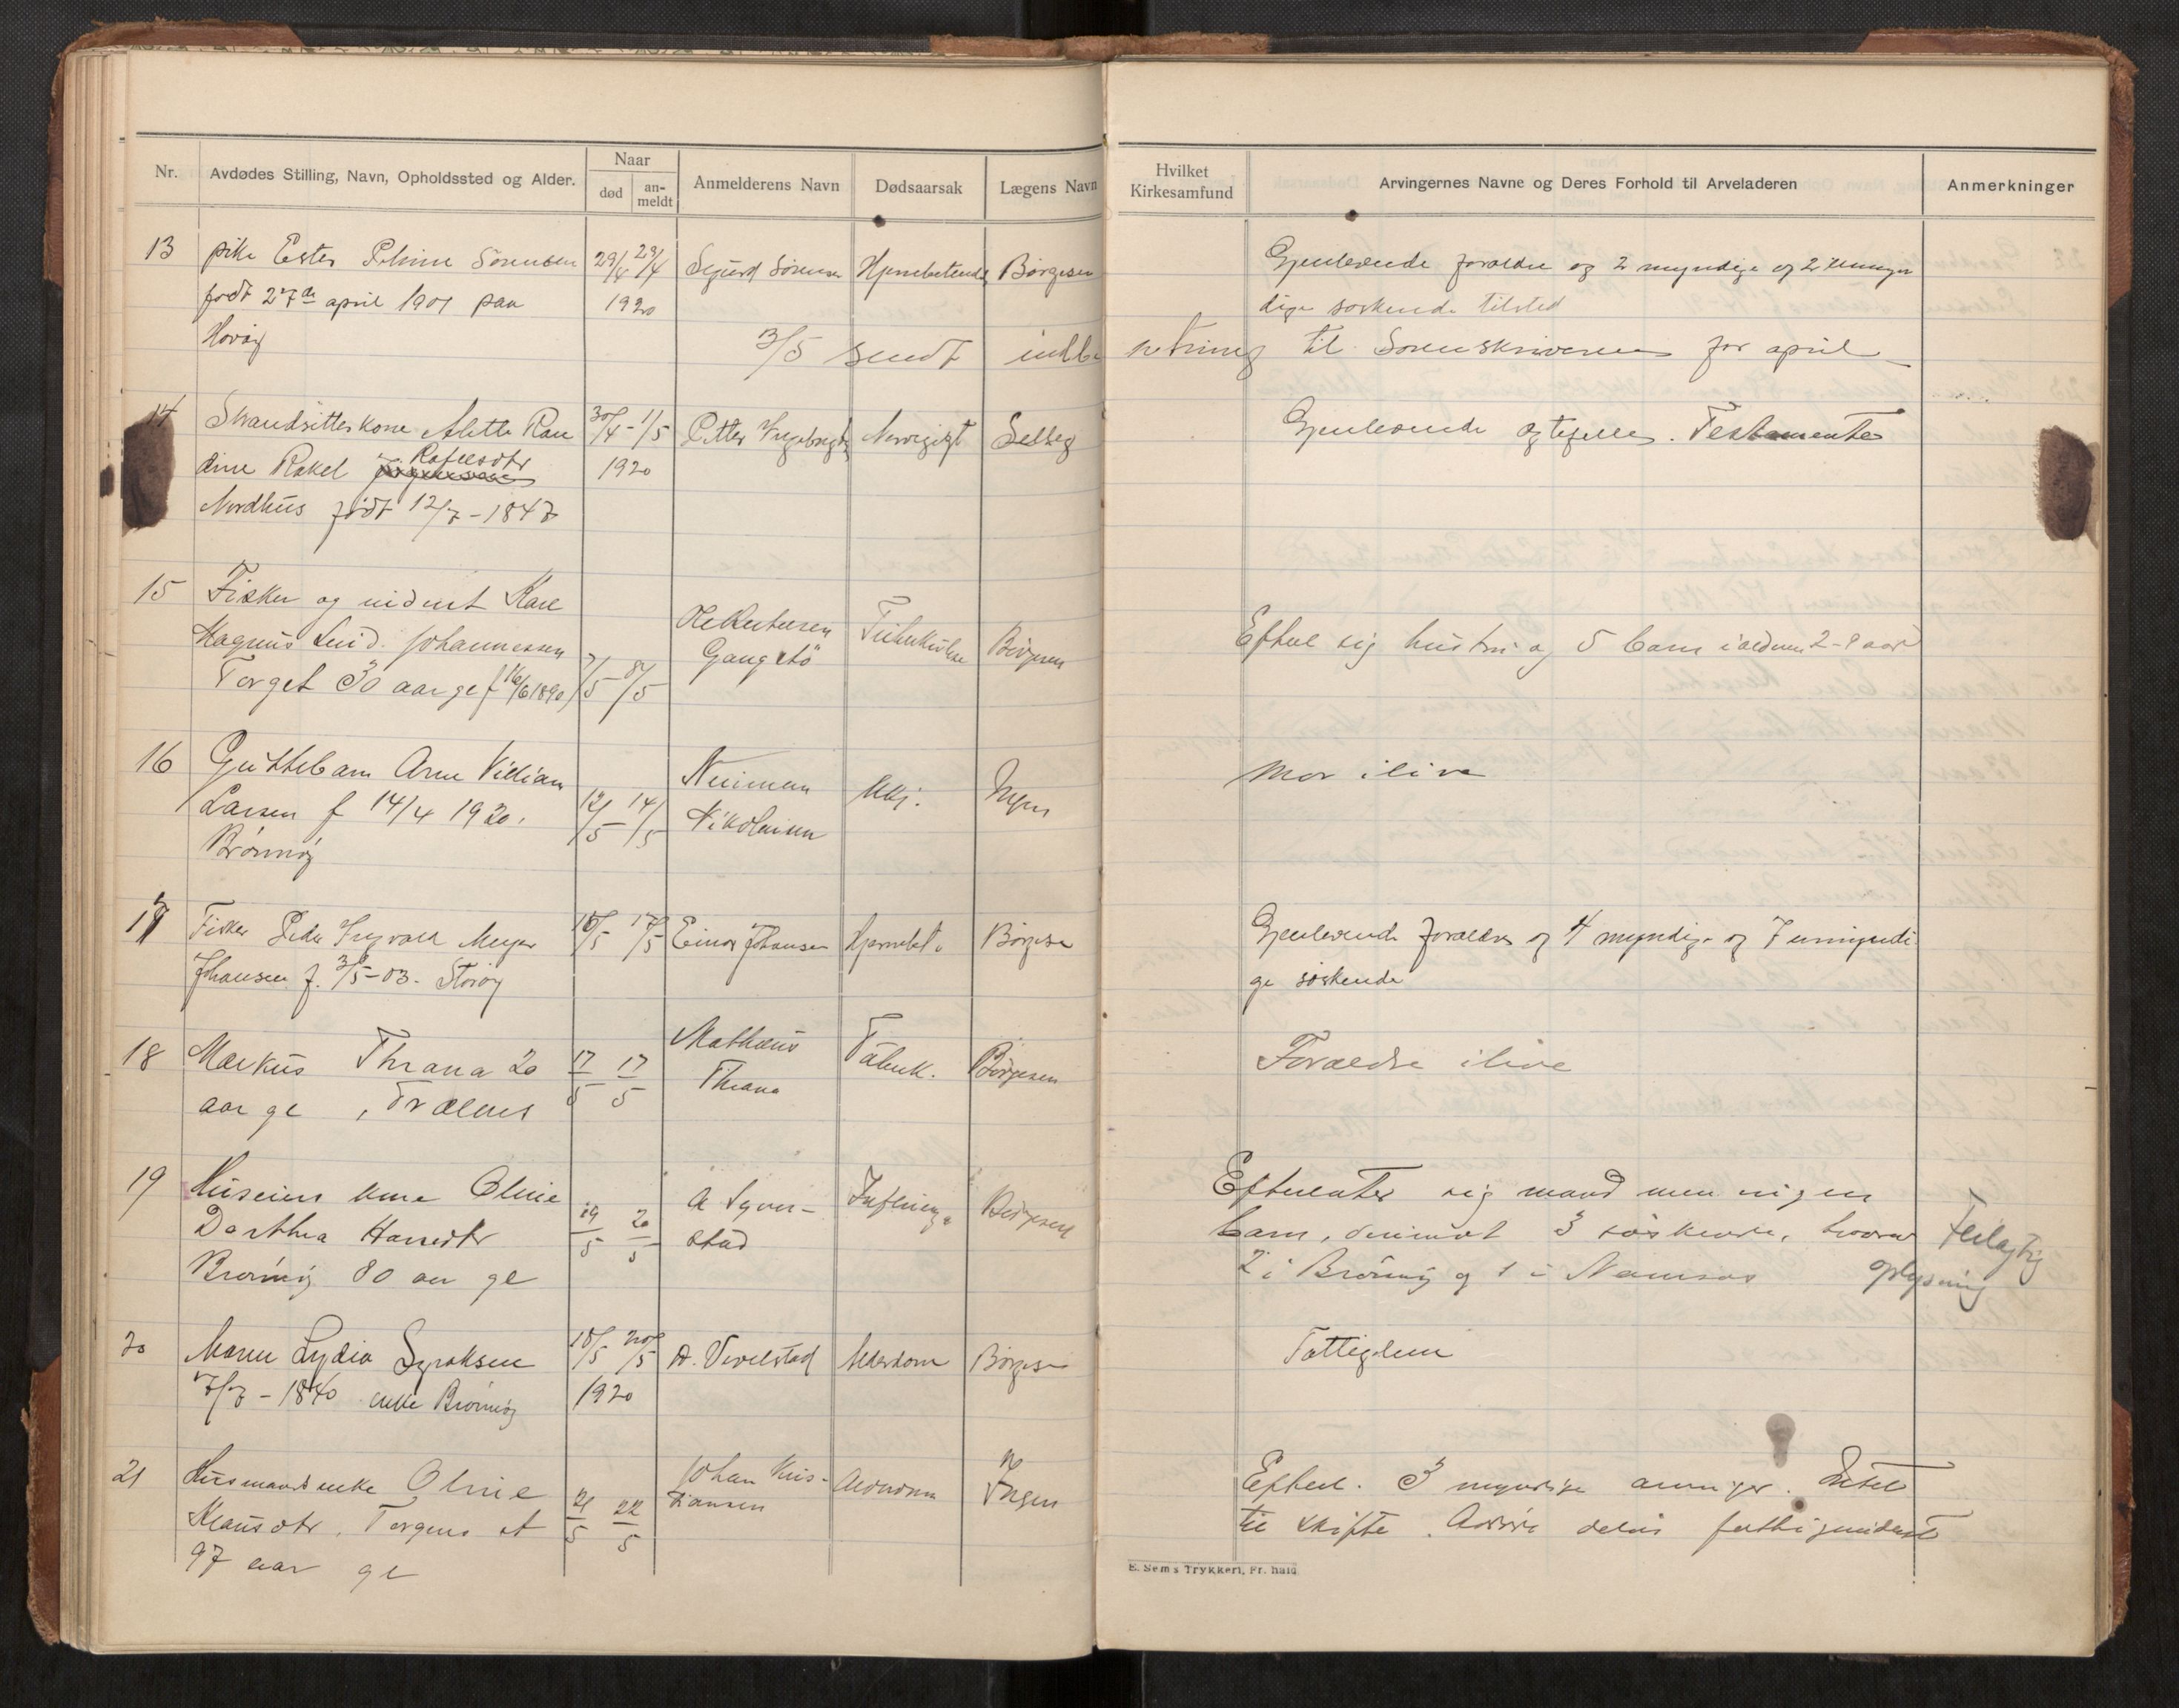 Nr.
Avdødes Stilling, Navn, Opholdssted og Alder.
Naar
død
an-
meldt
Anmelderens Navn
Dødsaarsak
Lægens Navn
Hvilket
Kirkesamfund
Arvingernes Navne og Deres Forhold til Arveladeren
Anmerkninger
13 pike Ester Sørensen 29/4 29/4 Sigurd Sørensen Hjernebetændelse Børgesen Gjenlevende forældre og 2 myndige og 2 umyn
født 27de april 1901 paa 1920 dige søskende tilsted
Horvøy
3/5 sendt indberetning til Sorenskriveren for april
14 Strandsitterkone Alette Ran 30/4 - 1/5 Petter Selberg Gjenlevende ægtefelle. Testamente
dine Rakel Rafelsdtr 1920
Nordhus født 12/7 - 1847
15 Fisker og
Magnus Johannessen Børgesen Efterl sig hustru og 5 barn i alderen 2-9 aar
Torget 30 aar gl (f 16/6 1890) 7/5 8/5
16 Guttebarn Arne Villiam Mor ilive
Larsen f 14/4 1920. 12/5 14/5 Nikolaisen Ukj. Ingen
Brønnøy
17 Fisker Peder Ingvald Meyer 16/5 17/5 Einar Johansen Hjernebet. Børgesen Gjenlevende forældre og 4 myndige og 7 umyndi
Johansen f. 3/5-03. Storøy ge søskende
18 Markus Thrana 20 17/5 17/5 Mathæus Tuberk. Børgesen Forældre ilive
aar gl, Trælnes Thrana
19 Huseiers kone Oline 19/5 20/5 Influenza Børgesen Efterlater sig mand men ingen
Dorthea Hansdtr barn, derimot 3 søskende, hvorav Feilagtig
Brønnøy 80 aar gl 2 i Brønnøy og 1 i Namsos oplysning
20 Maren Lydia Syraksen 18/5 20/5 A. Vevelstad Alderdom Børgesen Fattiglem
7/7 - 1840 enke Brønnøy 1920
21 Husmandsenke Oline 21/5 22/5 Johan Kris- Alderdom Ingen Efterl. 3 myndige arvinger. Intet
Klausdtr, Torgens et tiansen til skifte. Avdøde delvis fattigunderst
97 aar gl
E. Sem's Trykkeri, Fr. hald.